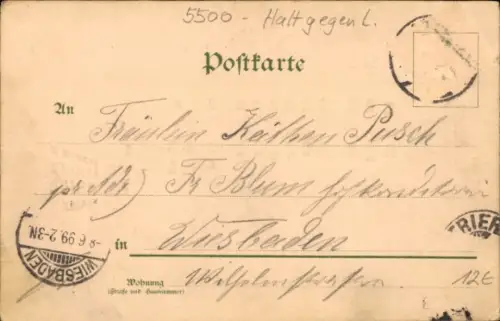 5500 - Halt gegen L.
Postkarte
An Fräulein Käthen Pusch
pr Adr) Fr Blum Hofkonditorei
RIER
in Wiesbaden
-8.6.99.2-3N.
WIESBADEN
Wohnung Wilhelmstrasse
(Straße und Hausnummer)
12€